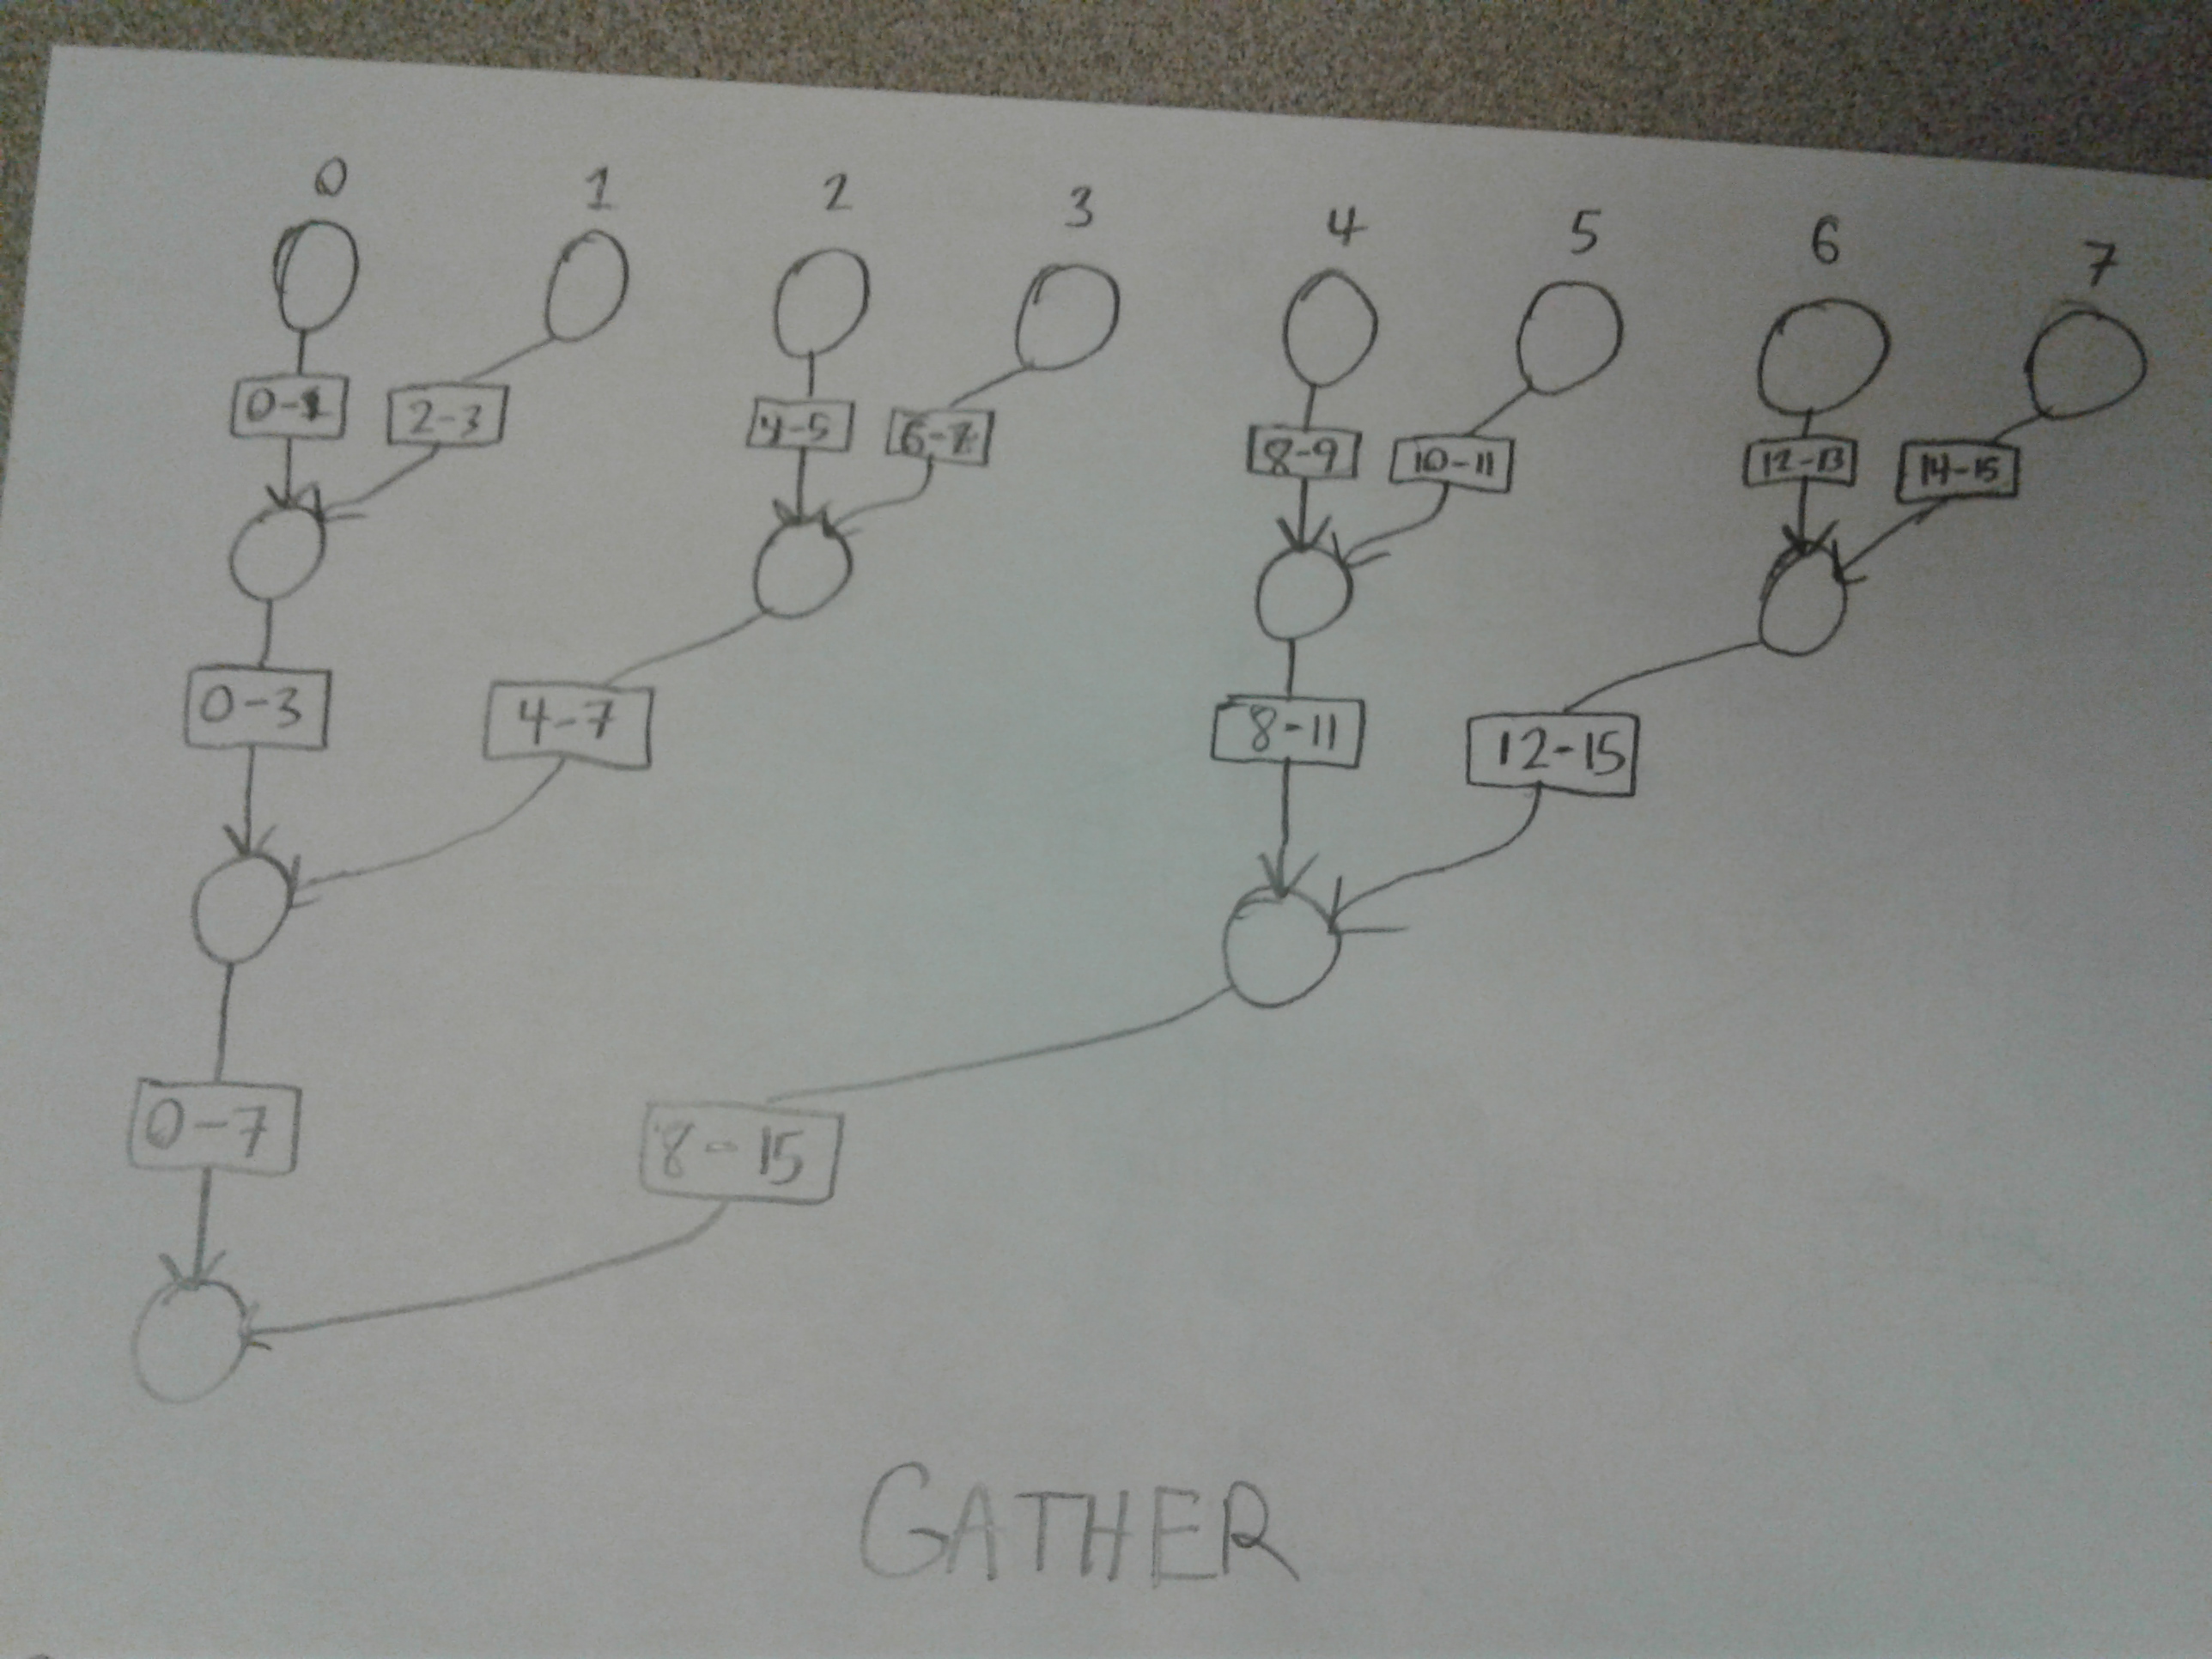 0 1 2 3 4 5 6 7
0-1 2-3 4-5 6-7 8-9 10-11 12-13 14-15
0-3 4-7 8-11 12-15
0-7 8-15
GATHER